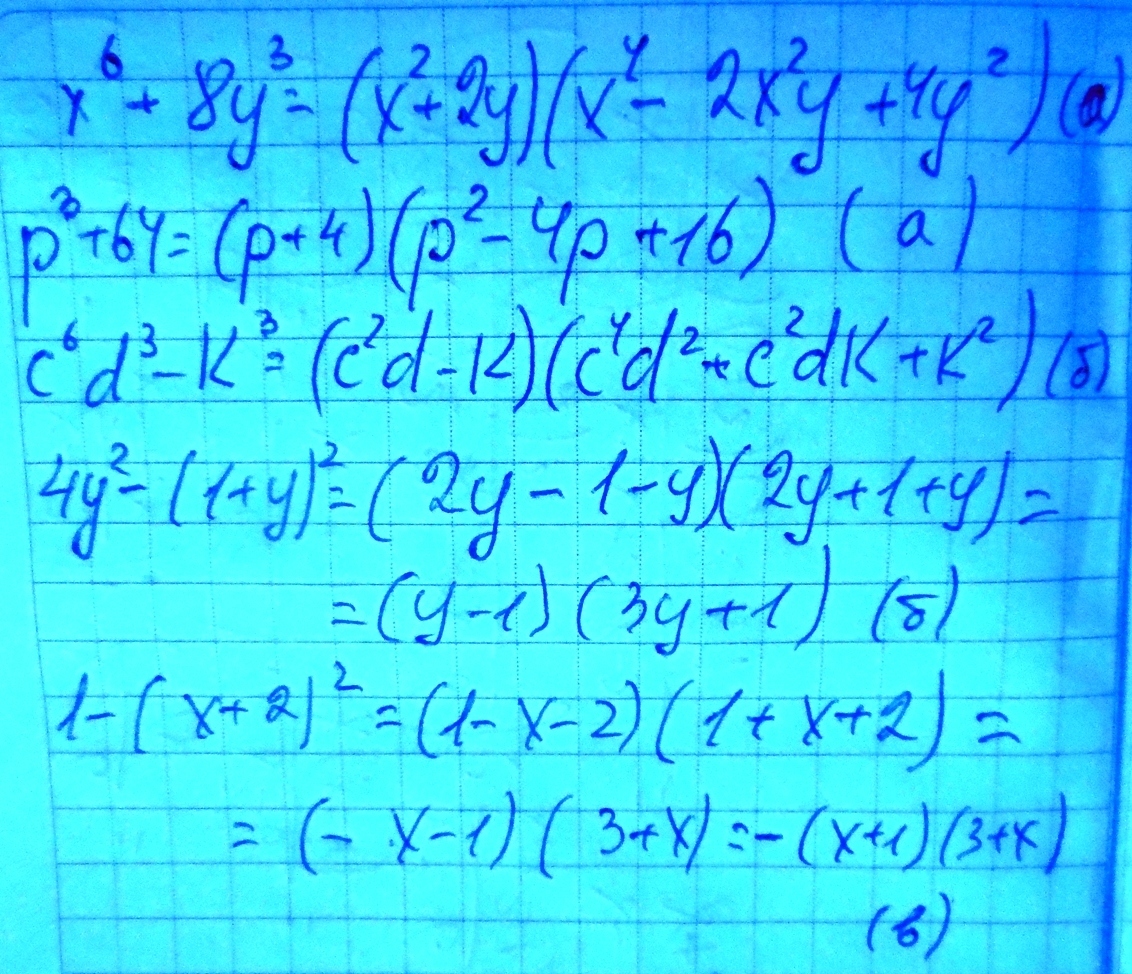 x⁶ + 8y³ = (x² + 2y)(x⁴ - 2x²y + 4y²) (а)
p³ + 64 = (p + 4)(p² - 4p + 16) (а)
c⁶d³ - k³ = (c²d - k)(c⁴d² + c²dk + k²) (б)
4y² - (1+y)² = (2y - 1 - y)(2y + 1 + y) =
= (y - 1)(3y + 1) (б)
1 - (x + 2)² = (1 - x - 2)(1 + x + 2) =
= (- x - 1)(3 + x) = -(x + 1)(3 + x)
(в)